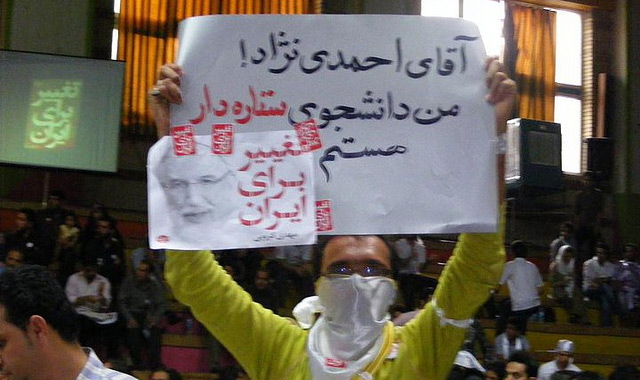 آقای احمدی نژاد!
من دانشجوی ستاره دار
هستم
تغییر
برای
ایران
تغییر
برای
ایران